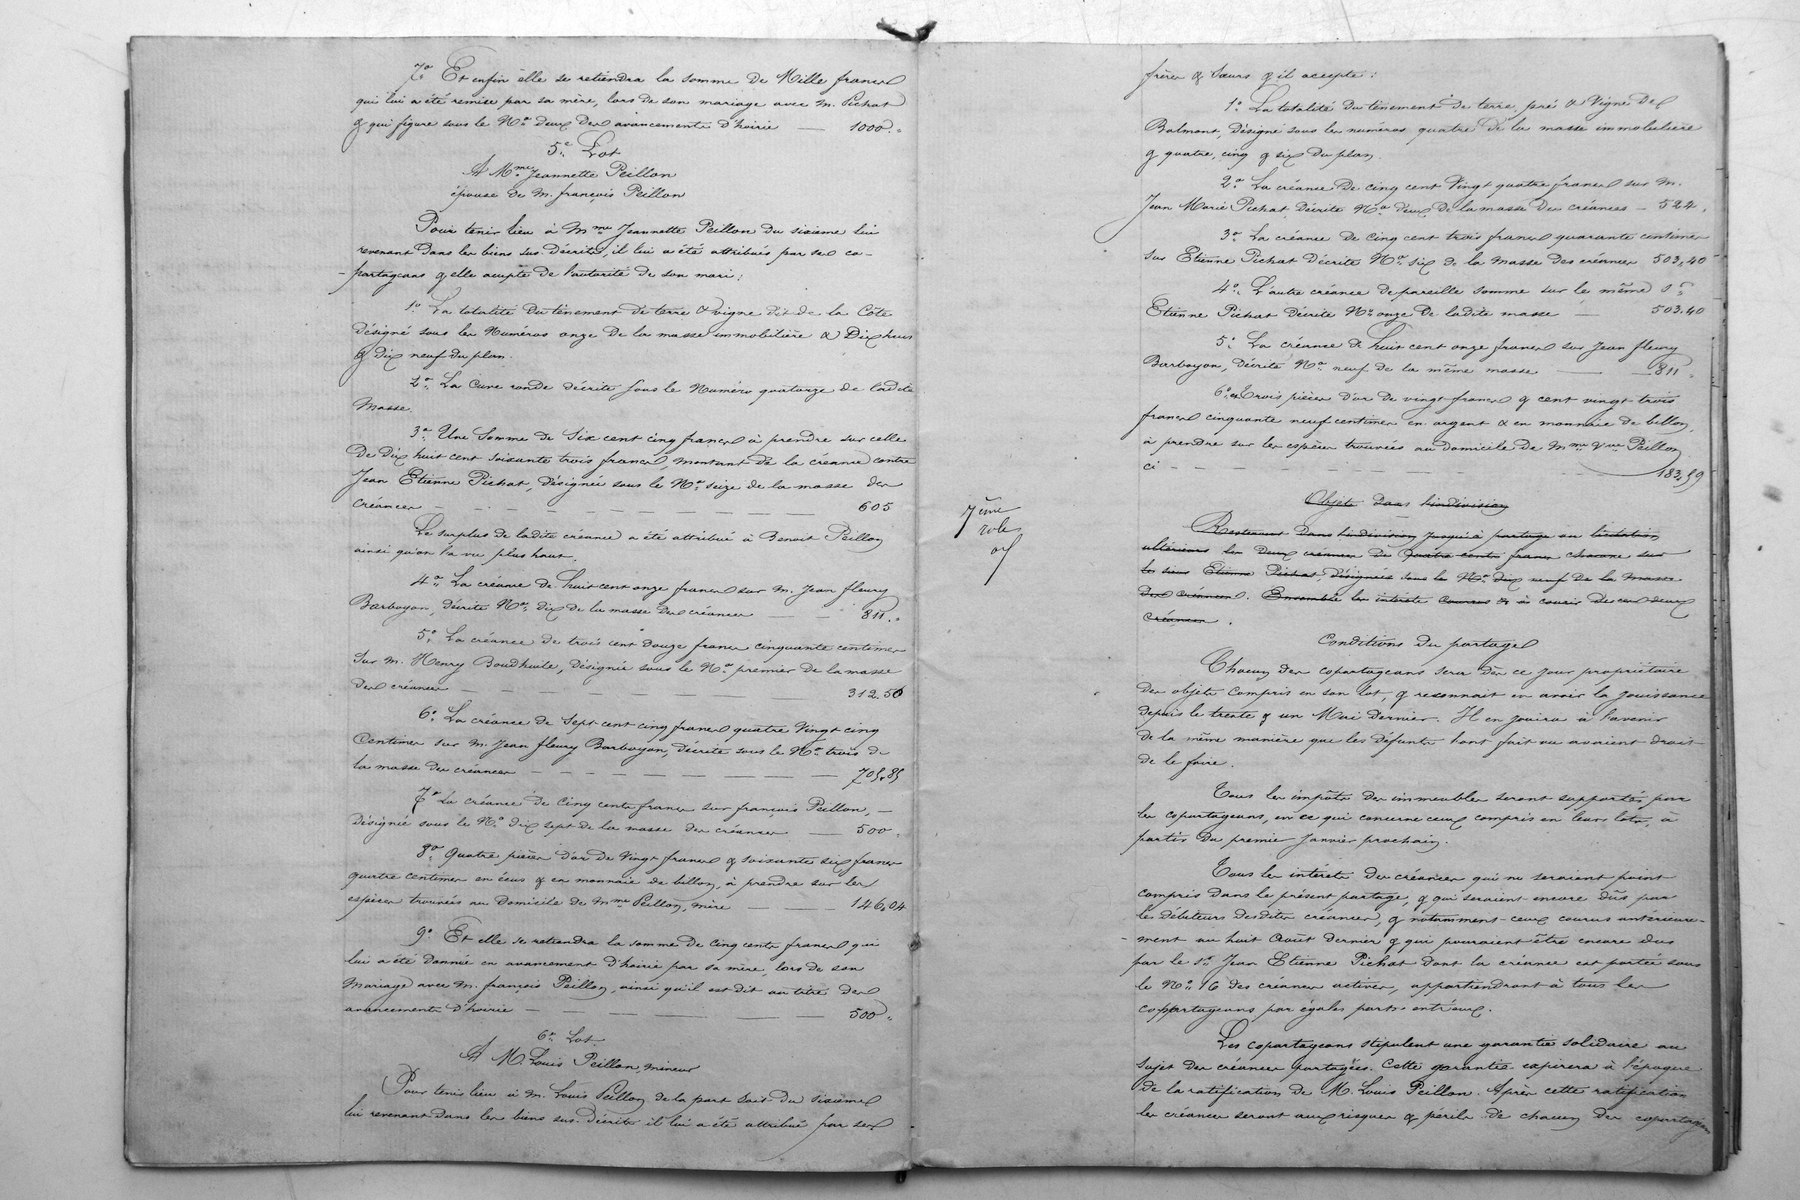 7° Et enfin elle se retiendra la somme de Mille francs
qui lui a été remise par sa mère, lors de son mariage avec M. Pichat
& qui figure sous le No. deux des avancements d'hoirie — 1000 "
5e Lot
A Mme Jeannette Peillon
épouse de M. françois Peillon
Pour tenir lieu à Mme Jeannette Peillon du sixième lui
revenant dans les biens sus décrits, il lui a été attribués par ses co-
-partageans & elle acepte de l'autorité de son mari :
1° La totalité du tènement de terre & vigne dit de la Côte
désigné sous les Numéros onze de la masse immobilière & Dix huit
& dix neuf du plan.
2° La Cuve ronde décrite sous le Numéro quatorze de ladite
Masse.
3° Une Somme de Six cent cinq francs à prendre sur celle
De dix huit cent soixante trois francs, montant de la créance contre
Jean Etienne Pichat, désignée sous le No. seize de la masse des
créances — — — — — 605
Le surplus de ladite créance a été attribué à Benoit Peillon
ainsi qu'on l'a vu plus haut.
4° La créance de huit cent onze francs sur M. Jean fleury
Barboyon, décrite No. dix de la masse des créances — — 811 "
5° La créance de trois cent douze francs cinquante centimes
Sur M. Henry Boudhuile, désignée sous le No. premier de la masse
des créances — — — — — 312.50
6° La créance de Sept cent cinq francs quatre Vingt cinq
Centimes sur M. Jean fleury Barboyon, décrite sous le No. trois de
la masse des créances — — — — — 705.85
7° La créance de Cinq cents francs sur françois Peillon, —
désignée sous le No. dix sept de la masse des créances — 500 "
8° Quatre pièces d'or de Vingt francs & soixante six francs
quatre centimes en écus & en monnaie de billon, à prendre sur les
espèces trouvées au domicile de Mme Peillon, mère — — 146.04
9° Et elle se retiendra la somme de Cinq cents francs qui
lui a été donnée en avancement d'hoirie par sa mère, lors de son
Mariage avec M. françois Peillon, ainsi qu'il est dit au titre des
avancements d'hoirie — — — — — 500 "
6e Lot
A M. Louis Peillon, mineur
Pour tenir lieu à M. Louis Peillon de la part soit du sixième
lui revenant dans les biens sus-décrits il lui a été attribué par ses
7ème
role
frères & Sœurs & il accepte :
1° La totalité du tènement de terre, pré & Vigne des
Balmont, désigné sous les numéros quatre de la masse immobilière
& quatre, cinq & six du plan.
2° La créance de cinq cent Vingt quatre francs sur M.
Jean Marie Pichat, décrite No. deux de la masse des créances — 524 "
3° La créance de Cinq cent trois francs quarante centimes
sur Etienne Pichat décrite No. six de la masse des créances 503.40
4° L'autre créance de pareille somme sur le même Sr
Etienne Pichat décrite No. onze de ladite masse — 503.40
5° La créance de huit cent onze francs sur Jean fleury
Barboyon, décrite No. neuf de la même masse — — 811 "
6° Trois pièces d'or de vingt francs & cent vingt trois
francs cinquante neuf centimes en argent & en monnaie de billon,
à prendre sur les espèces trouvées au domicile de Mme Vve Peillon
ci — — — — — 183.59
Objets dans l'indivision
Resteront dans l'indivision jusqu'à partage ou licitation
ultérieurs les deux créances de Quatre cents francs chacune sur
le sieur Etienne Pichat, désignées sous les No. dix neuf de la Masse
des créances. Ensemble les intérêts courus & à courir de ces deux
créances.
Conditions du partage
Chacun des copartageans sera dès ce jour propriétaire
des objets compris en son lot, & reconnait en avoir la jouissance
depuis le trente & un Mai dernier. Il en jouira à l'avenir
de la même manière que les défunts l'ont fait ou avaient droit
de le faire.
Tous les impôts des immeubles seront supportés par
les copartageans, en ce qui concerne ceux compris en leurs lots, à
partir du premier Janvier prochain.
Tous les intérêts des créances qui ne seraient point
compris dans le présent partage, & qui seraient encore dûs par
les débiteurs desdites créances, & notamment ceux courus antérieure-
-ment au huit Août dernier & qui pourraient être encore dus
par le Sr. Jean Etienne Pichat dont la créance est portée sous
le No. 16 des créances actives, appartiendront à tous les
copartageans par égales parts entr'eux.
Les copartageans stipulent une garantie solidaire au
sujet des créances partagées. Cette garantie expirera à l'époque
de la ratification de M. Louis Peillon. Après cette ratification
les créances seront aux risques & périls de chacun des copartageans